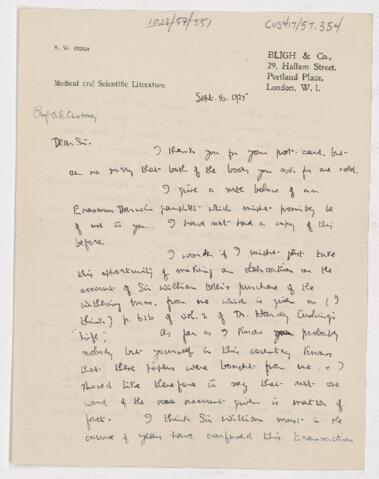 1028/57/351
CUS417/57.354
K. W. 10208
BLIGH & Co.,
29, Hallam Street,
Portland Place,
London, W. 1.
Medical and Scientific Literature
Sept. 16. 1925
Prof A.R. Cushny
Dear Sir.
I thank you for your post card, but
am so sorry that both of the books you ask for are sold.
I give a note below of an
Erasmus Darwin pamphlet which might possibly be
of use to you. I have not had a copy of this
before.
I wonder if I might just take
this opportunity of making an observation on the
account of Sir William Osler's purchase of the
Withering mss. from me which is given on (I
think) p. 616 of vol. 2 of Dr. Harvey Cushing's
'Life'.
As far as I know probably
nobody but yourself in this country knows
that these papers were bought from me, & I
should like therefore to say that not one
word of the account given is matter of
fact. I think Sir William must in the
course of years have confused this transaction